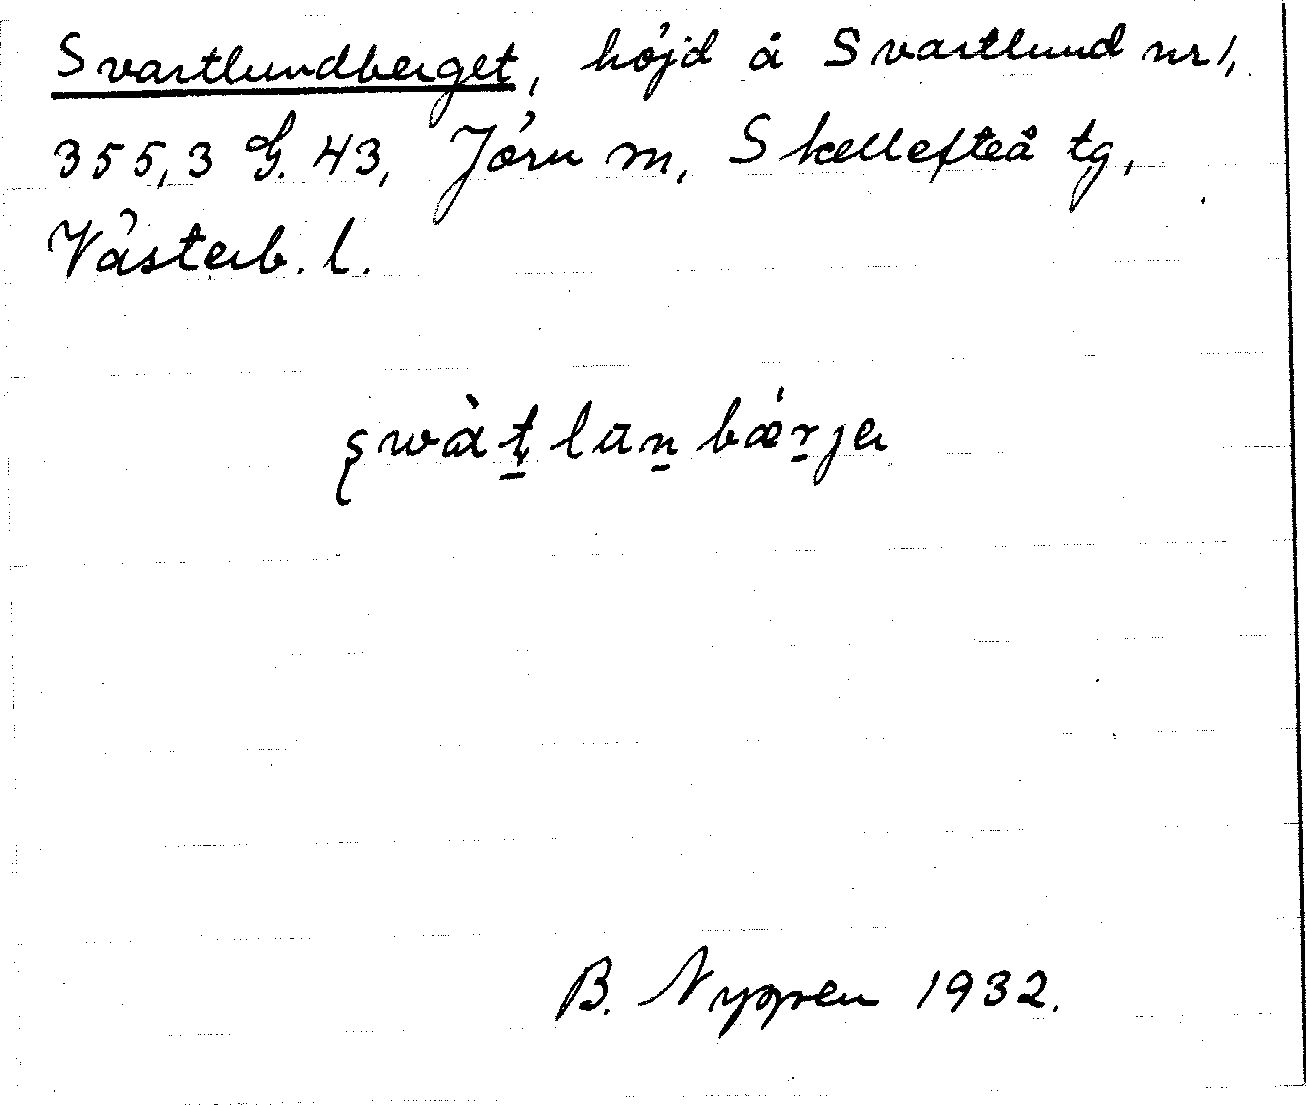 Svartlundberget, höjd å Svartlund nr 1,
355,3 G. 43, Jörn m, Skellefteå tg,
Västerb. l.
swàt̠lan̠bær̠ja
B. Nyggren 1932.